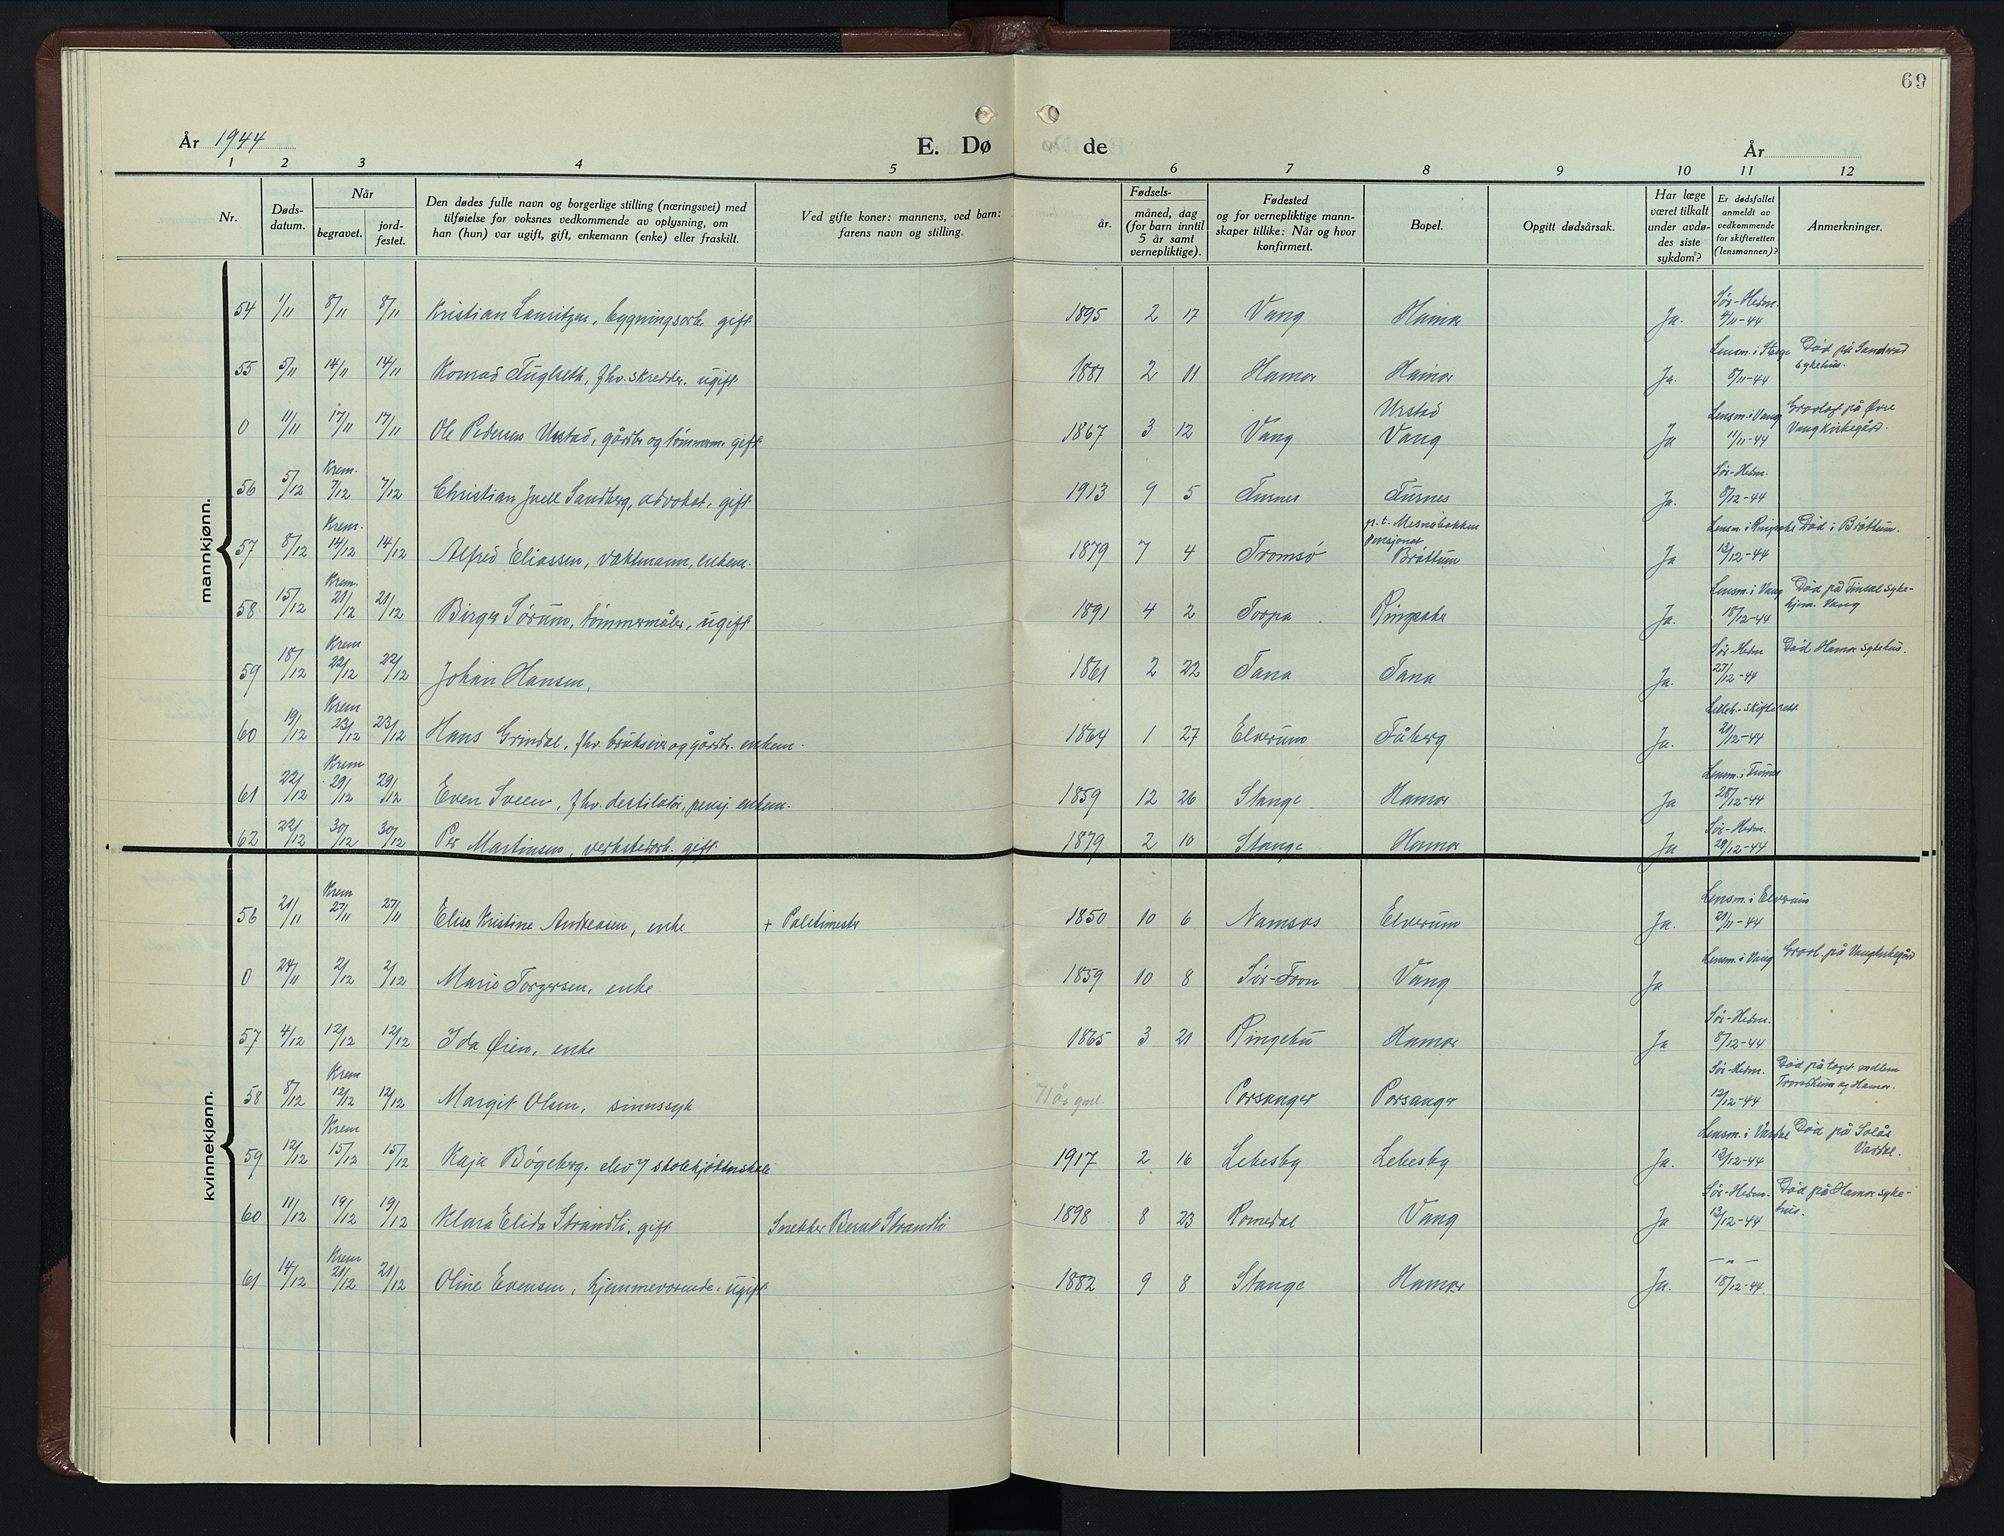 69
År 1944
E. Dø de
År
1 2 3 4 5 6 7 8 9 10 11 12
Nr.
Døds-
datum.
Når
begravet.
jord-
festet.
Den dødes fulle navn og borgerlige stilling (næringsvei) med
tilføielse for voksnes vedkommende av oplysning, om
han (hun) var ugift, gift, enkemann (enke) eller fraskilt.
Ved gifte koner: mannens, ved barn:
farens navn og stilling.
Fødsels-
år.
måned, dag
(for barn inntil
5 år samt
vernepliktige).
Fødested
og for vernepliktige mann-
skaper tillike: Når og hvor
konfirmert.
Bopel.
Opgitt dødsårsak.
Har læge
været tilkalt
under avdø-
des siste
sykdom?
Er dødsfallet
anmeldt av
vedkommende
for skifteretten
(lensmannen)?
Anmerkninger.
mannkjønn.
54 1/11 8/11 8/11 Kristian Lauritzen, bygningsarb. gift 1895 2 17 Vang Hamar Ja. Sør-Hedm. 4/11-44
55 5/11 14/11 14/11 Konrad Fuglseth, fhv. skredder. ugift 1881 2 11 Hamar Hamar Ja. Lensm. i Stange 8/11-44 Død på Sanderud
sykehus.
0 11/11 17/11 17/11 Ole Pedersen Urstad, gårdbr. og tømmerm. gift 1867 3 12 Vang Urstad
Vang Ja Lensm. i Vang 11/11-44 Gravlagt på Øvre
Vang Kirkegård.
56 5/12 Krem. 7/12 7/12 Christian Juell Sandberg, advokat, gift 1913 9 5 Furnes Furnes Ja. Sør-Hedm. 8/12-44
57 8/12 Krem. 14/12 14/12 Alfred Eliassen, vaktmann, enkem. 1879 7 4 Tromsø p.t. Mesnabakken
pensjonat
Brøttum Ja Lensm. i Ringsake 12/12-44 Død i Brøttum.
58 15/12 Krem. 21/12 21/12 Birger Sørum, tømmermåler, ugift 1891 4 2 Torpa Ringsake Ja. Lensm. i Vang 18/12-44 Død på Finsal syke-
hjm. Vang
59 18/12 Krem 22/12 22/12 Johan Hansen, 1861 2 22 Tana Tana Ja. Sør-Hedm 27/12-44 Død Hamar sykehus.
60 19/12 Krem 23/12 23/12 Hans Grindal, fhv. brukseier og gårdbr. enkem. 1864 1 27 Elverum Fåberg Ja. Lilleh.-skifterett 21/12-44
61 22/12 Krem 29/12 29/12 Even Sveen, fhv. destilatør, pensj. enkem. 1859 12 26 Stange Hamar Ja Lensm. i Furnes 28/12-44
62 22/12 30/12 30/12 Per Martinsen, verkstedarb. gift 1879 2 10 Stange Hamar Ja Sør-Hedm. 29/12-44
kvinnekjønn.
56 21/11 Krem 27/11 27/11 Elise Kristine Andreasen, enke + Politimester 1850 10 6 Namsos Elverum Ja. Lensm. i Elverum 21/11-44
0 24/11 2/12 2/12 Marie Torgersen, enke 1859 10 8 Sør-Fron Vang Ja Lensm. i Vang Gravl. på Vangkirkegård
57 4/12 12/12 12/12 Ida Øien, enke 1865 3 21 Ringebu Hamar Ja Sør-Hedm. 8/12-44
58 8/12 Krem 12/12 12/12 Margit Olsen, sinnssyk 71 år gml. Porsanger Porsanger Sør-Hedm. 12/12-44 Død på toget mellem
Trondheim og Hamar.
59 12/12 Krem 15/12 15/12 Kaja Bøgeberg, elev 1917 2 16 Lebesby Lebesby Ja. Lensm. i Vardal 12/12-44 Død på Solås
Vardal.
60 11/12 19/12 19/12 Klara Elida Strandli, gift Snekker Bernt Strandli 1898 8 23 Romedal Vang Ja Sør-Hedm. 13/12-44 Død på Hamar syke-
hus.
61 14/12 Krem 21/12 21/12 Oline Evensen, hjemmeværende. ugift 1882 9 8 Stange Hamar Ja. — " — 18/12-44